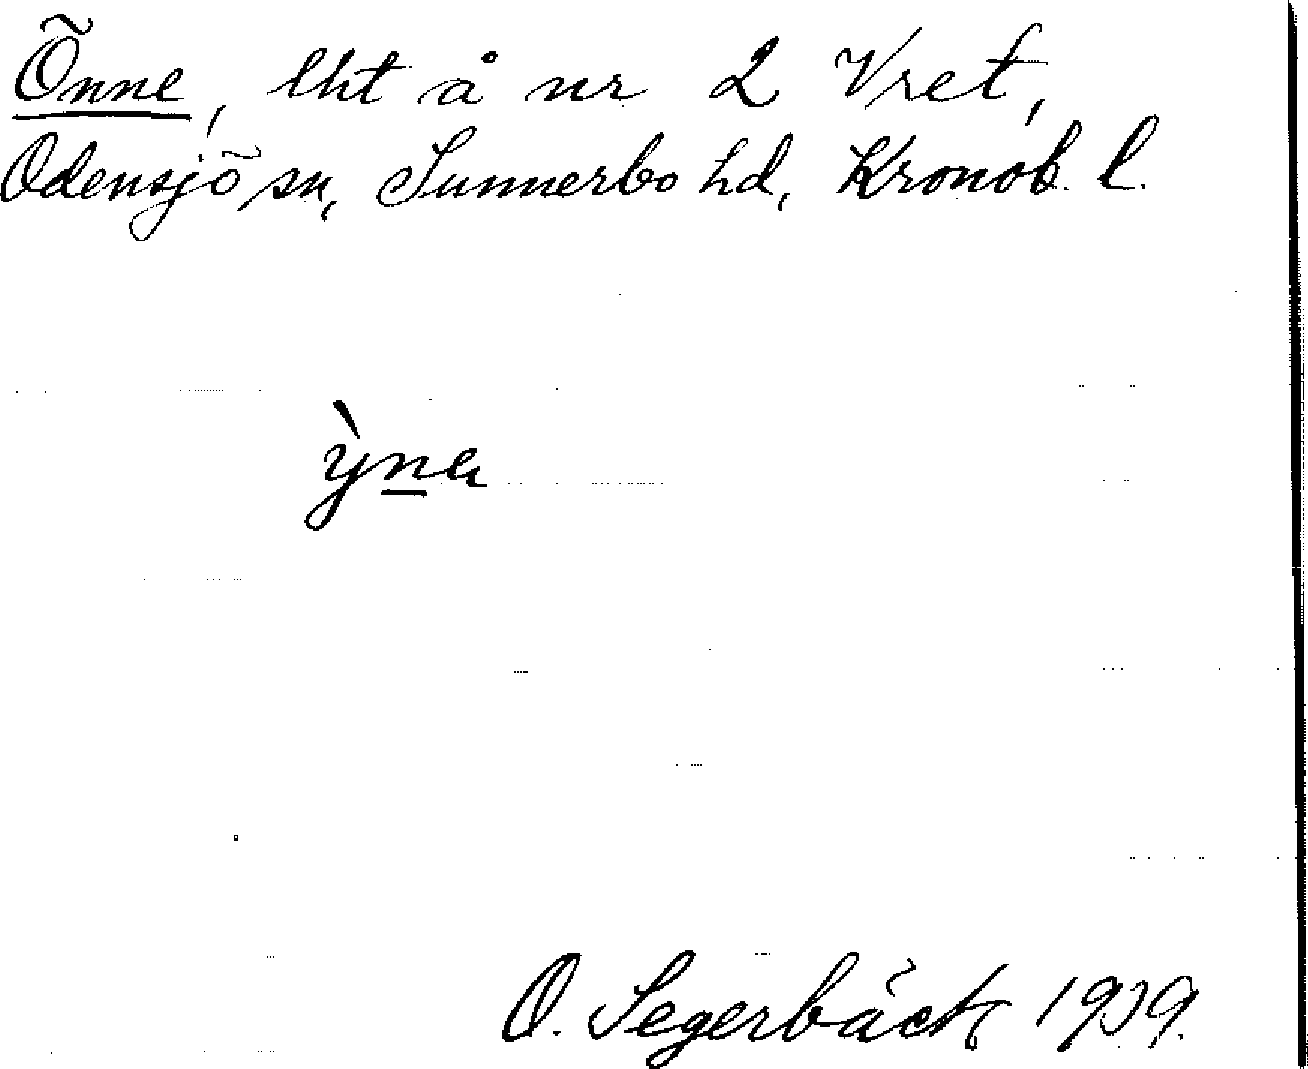 Önne, lht å nr 2 Vret,
Odensjö sn, Sunnerbo hd, Kronob. l.
ỳna
O. Segerbäck 1939.